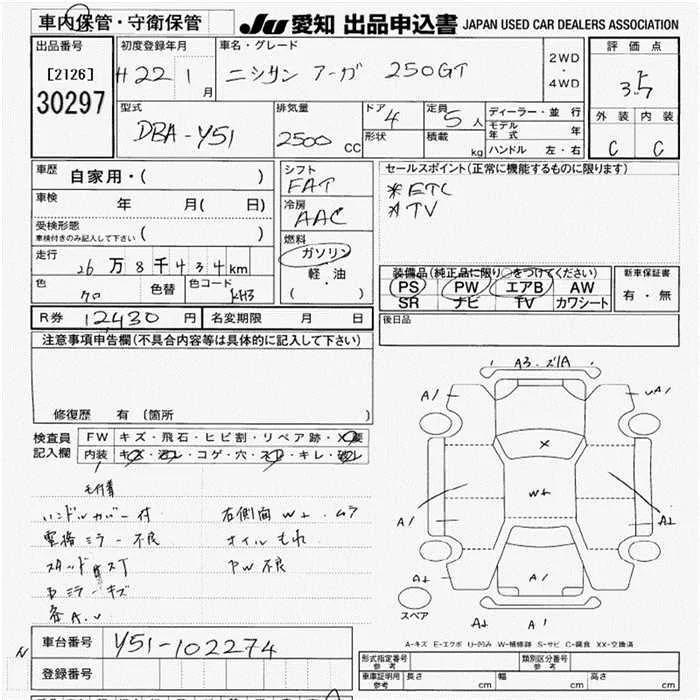 車内保管・守衛保管
JU 愛知 出品申込書 JAPAN USED CAR DEALERS ASSOCIATION
出品番号
[2126]
30297
初度登録年月
H22 1 月
車名・グレード
ニッサン フーガ 250GT
2WD
・
4WD
評価点
3.5
外装 内装
C C
型式
DBA-Y51
排気量
2500 CC
ドア 4
形状
定員 5 人
積載 kg
ディーラー・並行
モデル年式 年
ハンドル 左・右
車歴
自家用・( )
車検 年 月( 日)
受検形態
車検付きのみ記入して下さい ( )
走行
26万8千434km
色 クロ 色替 色コード KH3
シフト
FAT
冷房
AAC
燃料
ガソリン
軽・油
( )
セールスポイント(正常に機能するものに限ります)
*ETC
*TV
装備品(純正品に限り○をつけてください)
PS PW エアB AW
SR ナビ TV カワシート
新車保証書
有・無
R券 12,430 円 名変期限 月 日
後日品
注意事項申告欄(不具合内容等は具体的に記入して下さい)
修復歴 有〔箇所 〕
検査員
記入欄
FW キズ・飛石・ヒビ割・リペア跡・X要
内装 キズ・汚レ・コゲ・穴・スレ・キレ・破レ
ハンドルカバー付 右側面 W2 ムラ
電格ミラー不良 オイルもれ
スタッドレスT PW不良
ミラーキズ
各A.U
A3
A1
A1
X
W2
A1
A2
A1
A2
A2
A1
スペア
A-キズ E-エクボ U-凹み W-補修跡 S-サビ C-腐食 XX-交換済
車台番号 Y51-102274
登録番号
型式指定番号
参考
類別区分番号
参考
車庫証明用
参考
長さ cm 幅 cm 高さ cm